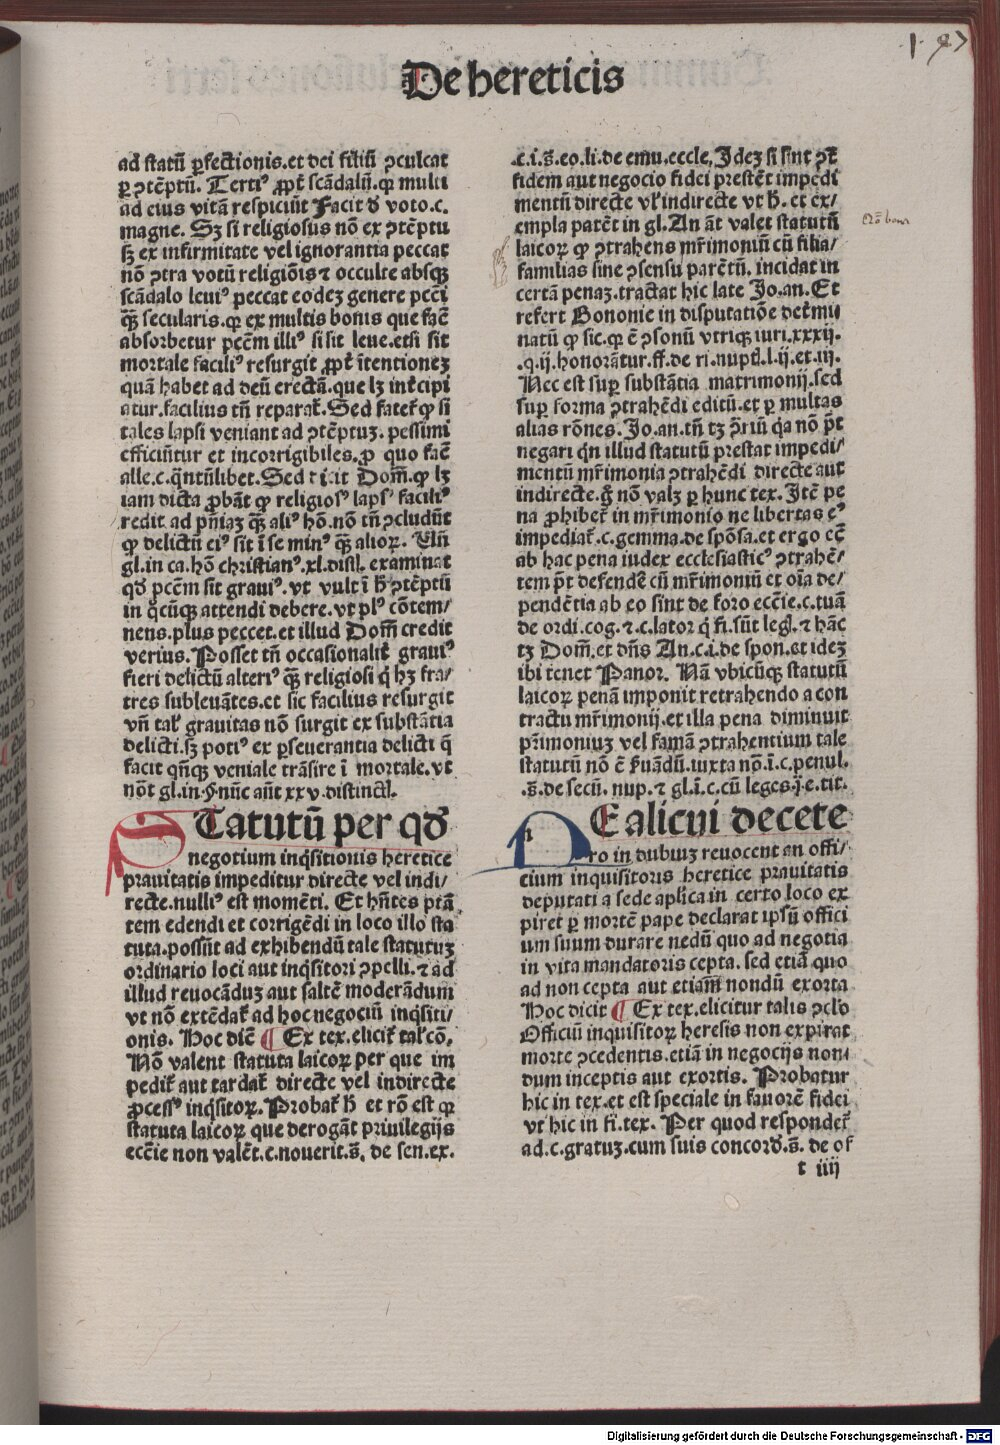 De hereticis
ad statū ꝑfectionis.et dei filiū ꝯculcat
ꝑ ꝯtēptū. Terti⁹ ꝓpt̄ scādalū.ꝙ multi
ad eius vitā respiciūt Facit đ voto.c.
magne. Sꝫ si religiosus nō ex ꝯtēptu
sꝫ ex infirmitate vel ignorantia peccat
nō ꝯtra votū religiōis ⁊ occulte absqꝫ
scādalo leui⁹ peccat eodeꝫ genere pcc̄i
q̄ꝫ secularis.ꝙ ex multis bonis que fac̄
absorbetur pcc̄m illi⁹ si sit leue.etsi sit
mortale facili⁹ resurgit ꝓpt̄ ītentioneꝫ
quā habet ad deū erectā.que lꝫ int̄cipi
atur.facilius tn̄ reparat̄.Sed fatet̄ ꝙ si
tales lapsi veniant ad ꝯtēptuꝫ. pessimi
efficiūtur et incorrigibiles.ꝓ quo fac̄
alle.c.q̄ntūlibet.Sed dicit Dom̄.ꝙ lꝫ
iam dicta ꝓbāt ꝙ religios⁹ laps⁹ facili⁹
redit ad pn̄iaꝫ q̄ꝫ ali⁹ hō.nō tn̄ ꝯcludūt
ꝙ delictū ei⁹ sit ī se min⁹ q̄ꝫ alioꝝ. Un̄
gl.in ca.hō christian⁹.xl.dist. examinat
qđ pcc̄m sit graui⁹.vt vult ī h̄ ꝯtēptū
in q̄cūqꝫ attendi debere.vt pl⁹ cōtem/
nens.plus peccet.et illud Dom̄ credit
verius. Posset tn̄ occasionalit̄ graui⁹
fieri delictū alteri⁹ q̄ꝫ religiosi q̇ hꝫ fra/
tres subleuātes.et sic facilius resurgit
vn̄ tal̄ grauitas nō surgit ex substātia
delicti.sꝫ poti⁹ ex ꝑseuerantia delicti q̄
facit qn̄qꝫ veniale trāsire ī mortale.vt
nōt gl.in.§.nūc aūt xxv.distinct.
STatutū per qđ
negotium inq̇sitionis heretice
prauitatis impeditur directe vel indi/
recte.nulli⁹ est momēti. Et hn̄tes ptā
tem edendi et corrigēdi in loco illo sta
tuta.possūt ad exhibendū tale statutuꝫ
ordinario loci aut inq̇sitori ꝯpelli.⁊ ad
illud reuocāduꝫ aut saltē moderādum
vt nō extēdat̄ ad hoc negociū inq̇siti/
onis. Hoc dic̄ ¶ Ex tex.elicit̄ tal̄ cō.
Nō valent statuta laicoꝝ per que im
pedit̄ aut tardat̄ directe vel indirecte
ꝓcess⁹ inq̇sitoꝝ. Probat̄ h̄ et rō est ꝙ
statuta laicoꝝ que derogāt priuilegijs
ecc̄ie non valēt.c.nouerit.s̄. de sen.ex.
.c.i.s̄.eo.li.de emu.eccle. Ideꝫ si sint ꝯt̄
fidem aut negocio fidei prestēt impedi
mentū directe vl̓ indirecte vt h̄. et ex/
empla patēt in gl. An āt valet statutū
laicoꝝ ꝙ ꝯtrahens mr̄imoniū cū filia/
familias sine ꝯsensu parētū. incidat in
certā penaꝫ.tractat hic late Jo.an. Et
refert Bononie in disputatiōe det̄mi
natū ꝙ sic.ꝙ ē ꝯsonū vtriqꝫ iuri.xxxij.
.q.ij.honorātur.ff.de ri.nupt.l.ij.et.iij.
Nec est suꝑ substātia matrimonij.sed
suꝑ forma ꝯtrahēdi editū.et ꝑ multas
alias rōnes. Jo.an.tn̄ tꝫ ꝯ̄riū q̇a nō pōt
negari q̇n illud statutū prestat impedi/
mentū mr̄imonia ꝯtrahēdi directe aut
indirecte.g̊ nō valꝫ ꝑ hunc tex. Itē pe
na ꝓhibet̄ in mr̄imonio ne libertas e⁹
impediat̄.c.gemma.de spōsa.et ergo ec̄
ab hac pena iudex ecclesiastic⁹ ꝯtrahē/
tem pōt defendē cū mr̄imoniū et oīa de/
pendētia ab eo sint de foro ecc̄ie.c.tuā
de ordi.cog.⁊.c.lator q̇ fi.sūt legl.⁊ hāc
tꝫ Dom̄.et dn̄s An.c.i.de spon.et ideꝫ
ibi tenet Panor. Nā vbicūqꝫ statutū
laicoꝝ penā imponit retrahendo a con
tractu mr̄imonij.et illa pena diminuit
pr̄imoniuꝫ vel famā ꝯtrahentium tale
statutū nō ē f̄uādū.iuxta nō.ī.c.penul.
.s̄.de secū. nup.⁊ gl.ī.c.cū leges.j.e.tit.
NE alicui decete
ro in dubiuꝫ reuocent an offi/
cium inquisitoris heretice prauitatis
deputati a sede aplica in certo loco ex
piret ꝑ mortē pape declarat ipsū offici
um suum durare nedū quo ad negotia
in vita mandatoris cepta. sed etiā quo
ad non cepta aut etiam̄ nondū exorta
Hoc dicit ¶ Ex tex.elicitur talis ꝯclo
Officiū inquisitoꝝ heresis non expirat
morte ꝯcedentis.etiā in negocijs non/
dum inceptis aut exortis. Probatur
hic in tex.et est speciale in fauorē fidei
vt hic in fi.tex. Per quod respondet̄
ad.c.gratuꝫ.cum suis concorđ.s̄. de of
t iiij
Digitalisierung gefördert durch die Deutsche Forschungsgemeinschaft - DFG